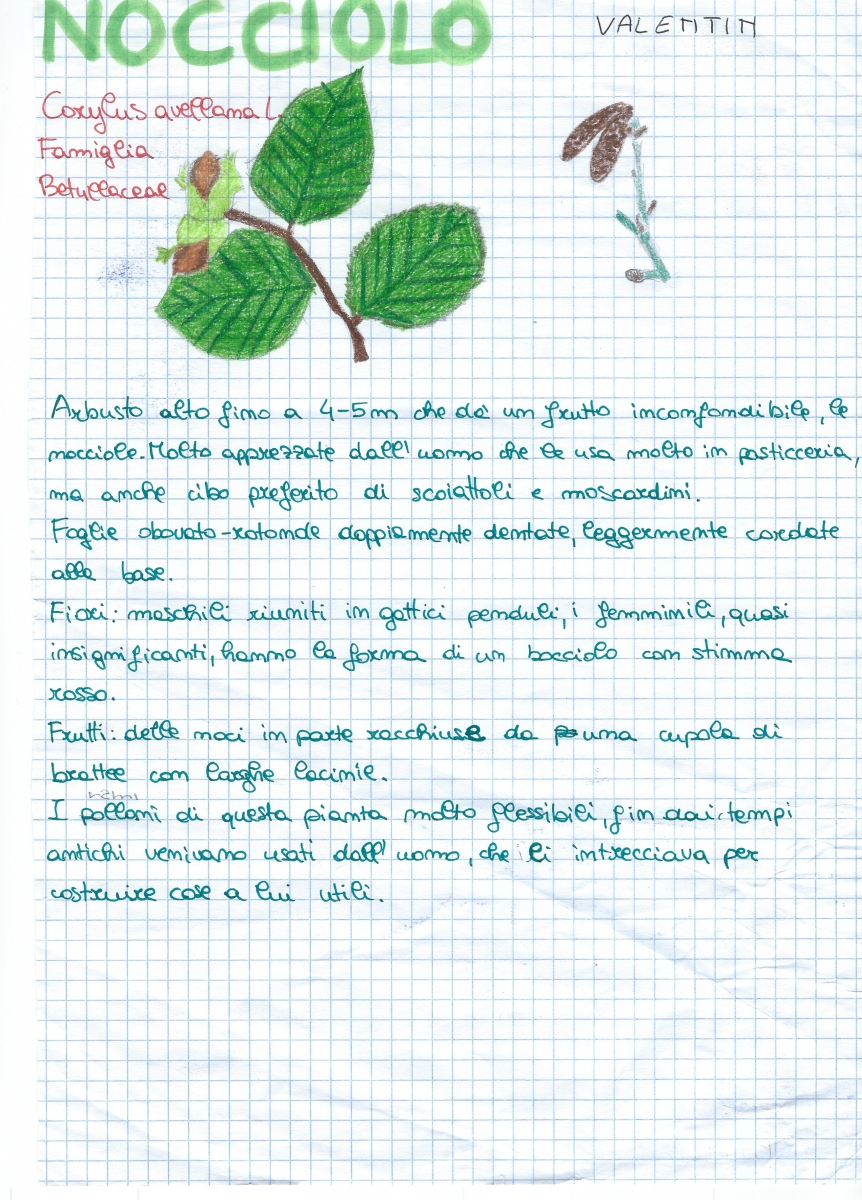 NOCCIOLO
VALENTIN
Corylus avellana L.
Famiglia
Betullaceae
Arbusto alto fino a 4-5m che da' un frutto inconfondibile, le
nocciole. Molto apprezzate dall' uomo che le usa molto in pasticceria,
ma anche cibo preferito di scoiattoli e moscardini.
Foglie obovato-rotonde doppiamente dentate, leggermente cordate
alla base.
Fiori: maschili riuniti in gattici penduli, i femminili, quasi
insignificanti, hanno la forma di un bocciolo con stimma
rosso.
Frutti: delle noci in parte racchiuse da una cupola di
brattee con larghe lacinie.
rami
I polloni di questa pianta molto flessibili, fin dai tempi
antichi venivano usati dall' uomo, che li intrecciava per
costruire cose a lui utili.